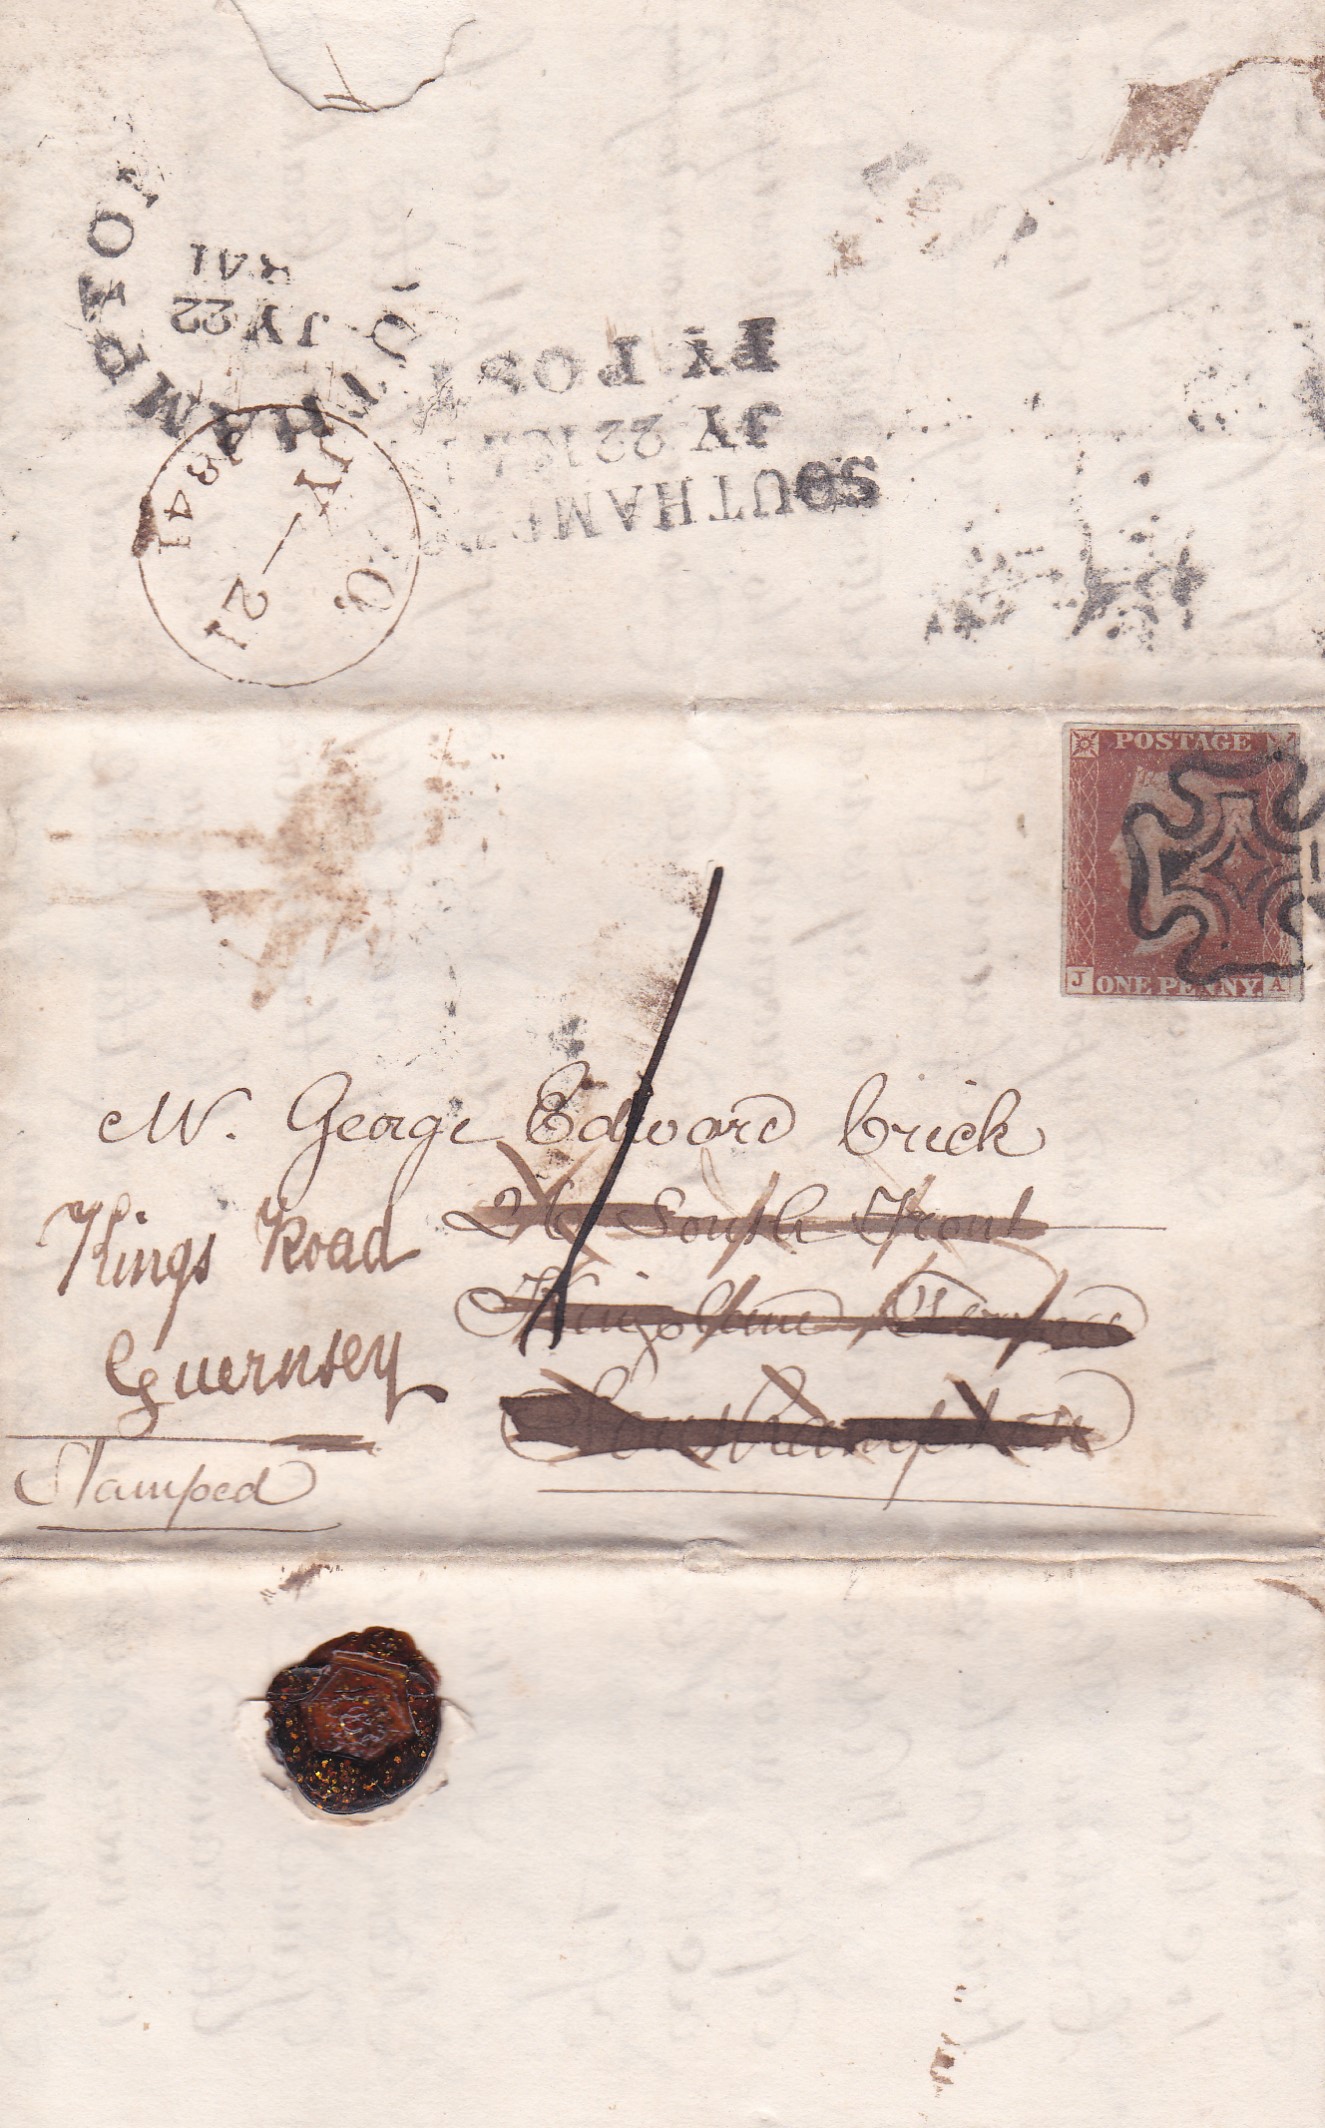 SOUTHAMPTON
JY 22
1841
SOUTHAMPTON
JY 22 184
PY POST
JY - 21
1841
POSTAGE
J ONE PENNY. A
1
Mr. George Edward Brick
26 South Front
Kingsland Terrace
Southampton
Kings Road
Guernsey
Stamped